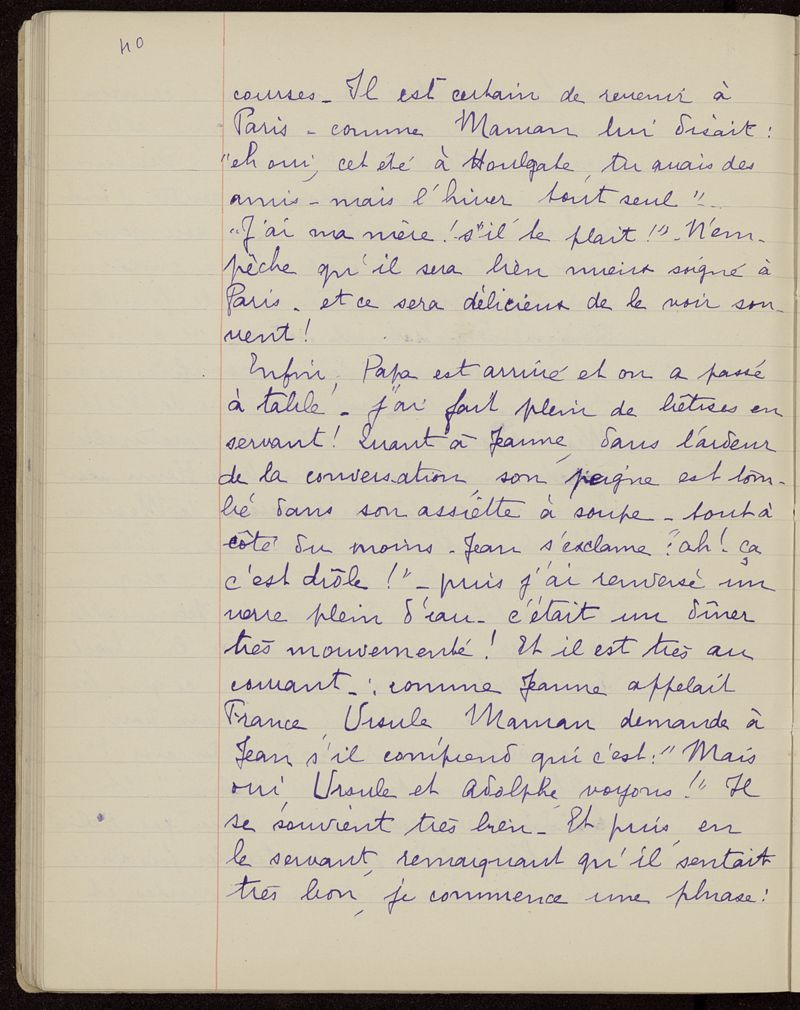 40
courses - Il est certain de revenir à
Paris - comme Maman lui disait :
"eh oui, cet été à Houlgate, tu avais des
amis - mais l'hiver tout seul" -
"J'ai ma mère ! s'il te plait !" - N'em-
pêche qu'il sera bien mieux soigné à
Paris - et ce sera délicieux de le voir sou-
vent !
Enfin, Papa est arrivé et on a passé
à table - j'ai fait plein de bêtises en
servant ! Quant à Jeanne, dans l'ardeur
de la conversation, son peigne est tom-
bé dans son assiette à soupe - tout à
côté du moins - Jean s'exclame : "ah ! ça
c'est drôle !" - puis j'ai renversé un
verre plein d'eau - c'était un dîner
très mouvementé ! Et il est très au
courant - : comme Jeanne appelait
France, Ursule Maman demande à
Jean s'il comprend qui c'est : "Mais
oui Ursule et Adolphe voyons !" Il
se souvient très bien - Et puis, en
le servant, remarquant qu'il sentait
très bon, je commence une phrase :